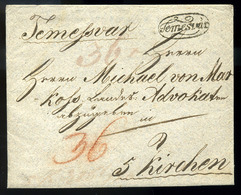 Temessvar
Temesvár
36
Herrn
Herrn Michael von Mar
Landes Advokaten
abzugeben
in
36
5 Kirchen